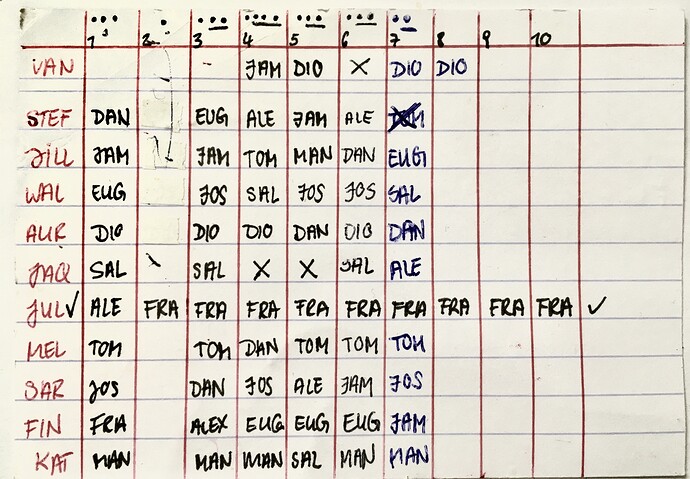 1 2 3 4 5 6 7 8 9 10
VAN - JAM DIO X DIO DIO
STEF DAN EUG ALE JAM ALE
JILL JAM JAM TOM MAN DAN EUG
WAL EUG JOS SAL JOS JOS SAL
AUR DIO DIO DIO DAN DIO DAN
JAQ SAL SAL X X SAL ALE
JUL✓ ALE FRA FRA FRA FRA FRA FRA FRA FRA FRA ✓
MEL TOM TOM DAN TOM TOM TOM
SAR JOS DAN JOS ALE JAM JOS
FIN FRA ALEX EUG EUG EUG JAM
KAT MAN MAN MAN SAL MAN MAN